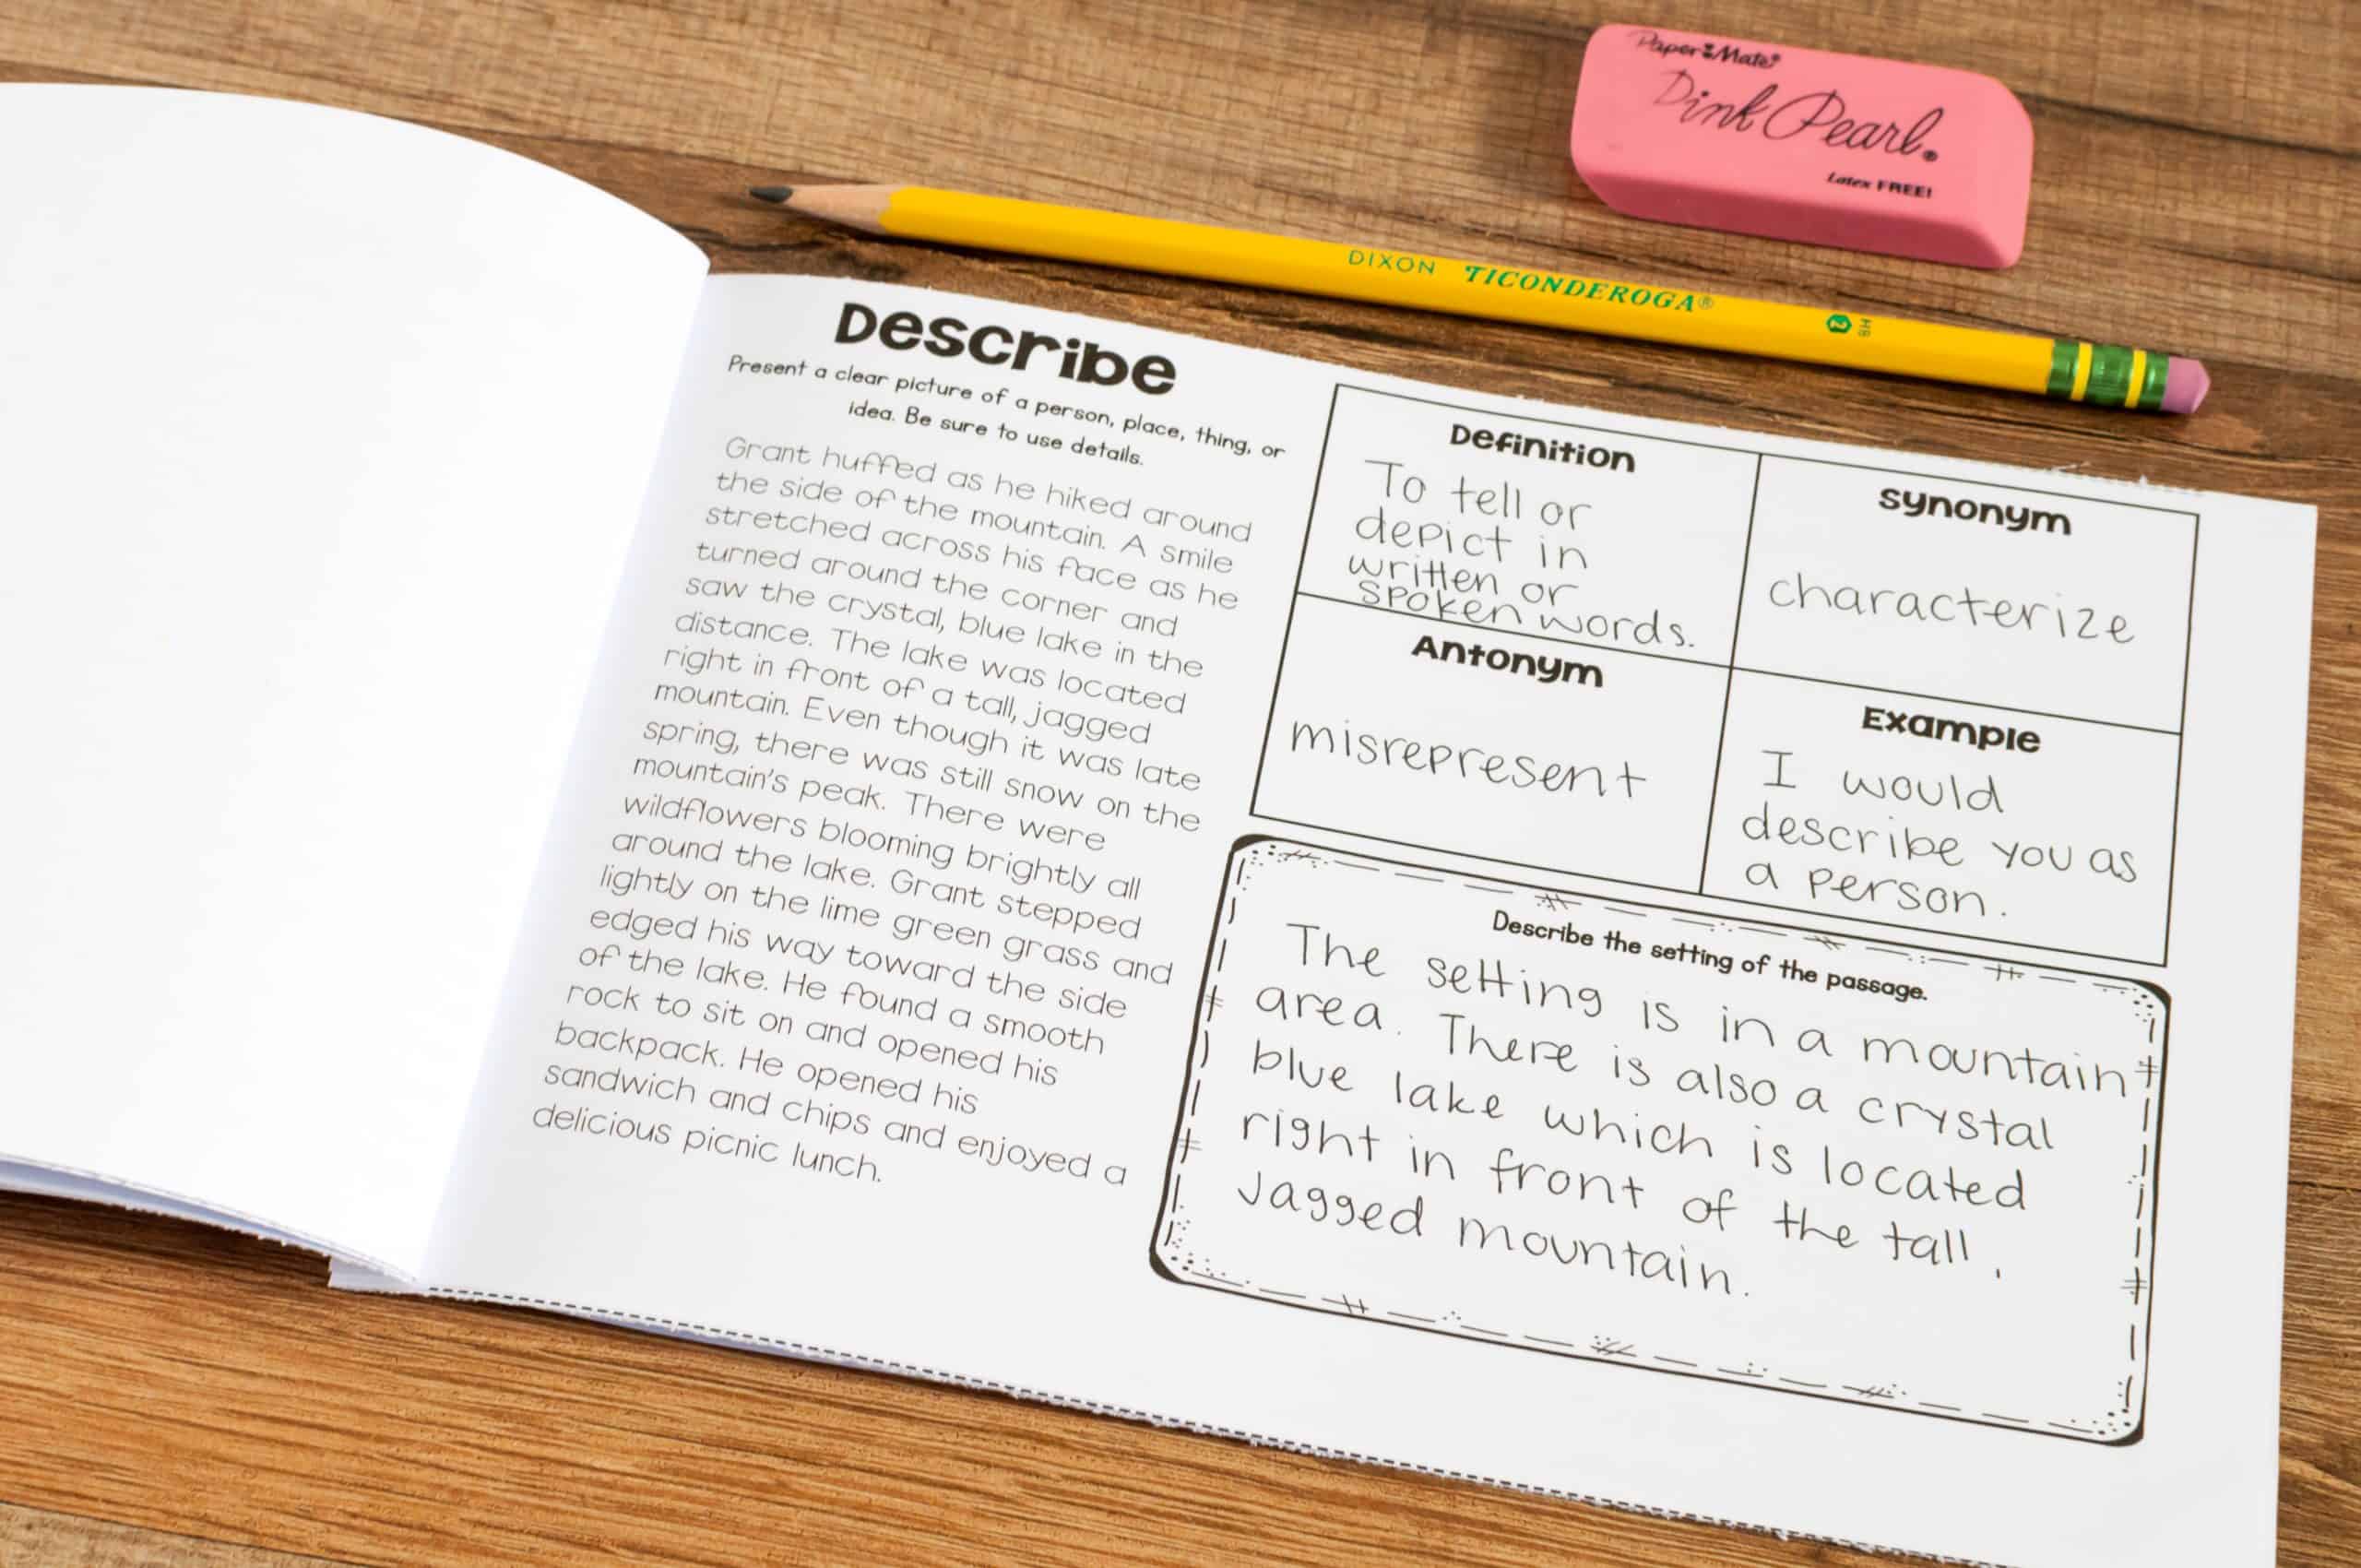 Paper Mate®
Pink Pearl®
Latex FREE!
DIXON TICONDEROGA® 2 HB
Describe
Present a clear picture of a person, place, thing, or
idea. Be sure to use details.
Grant huffed as he hiked around
the side of the mountain. A smile
stretched across his face as he
turned around the corner and
saw the crystal, blue lake in the
distance. The lake was located
right in front of a tall, jagged
mountain. Even though it was late
spring, there was still snow on the
mountain's peak. There were
wildflowers blooming brightly all
around the lake. Grant stepped
lightly on the lime green grass and
edged his way toward the side
of the lake. He found a smooth
rock to sit on and opened his
backpack. He opened his
sandwich and chips and enjoyed a
delicious picnic lunch.
Definition
To tell or
depict in
written or
spoken words.
Synonym
characterize
Antonym
misrepresent
Example
I would
describe you as
a person.
Describe the setting of the passage.
The setting is in a mountain
area. There is also a crystal
blue lake which is located
right in front of the tall,
jagged mountain.